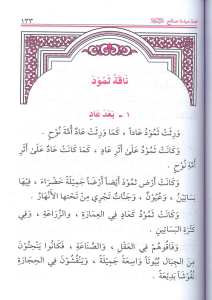 قصة سيدنا صالح
١٣٣
نَاقَةُ ثَمُودَ
١ - بَعْدَ عَادٍ
وَرِثَتْ ثَمُودُ عَاداً ، كَمَا وَرِثَتْ عَادٌ أُمَّةَ نُوْحٍ .
وَكَانَتْ ثَمُودُ عَلَىٰ أَثَرِ عَادٍ ، كَمَا كَانَتْ عَادٌ عَلَىٰ أَثَرِ
أُمَّةِ نُوْحٍ .
وَكَانَتْ أَرْضُ ثَمُودَ أَيْضاً أَرْضاً جَمِيْلَةً خَضْرَاءَ ، فِيهَا
بَسَاتِيْنُ ، وَعُيُوْنٌ ، وَجَنَّاتٌ تَجْرِي مِنْ تَحْتِهَا الْأَنْهَارُ .
وَكَانَتْ ثَمُودُ كَعَادٍ فِي الْعِمَارَةِ ، وَالزِّرَاعَةِ ، وَفِي
كَثْرَةِ الْبَسَاتِيْنِ .
وَفَاقُوهُمْ فِي الْعَقْلِ ، وَالصِّنَاعَةِ ، فَكَانُوا يَنْحِتُوْنَ
مِنَ الْجِبَالِ بُيُوْتاً وَاسِعَةً جَمِيْلَةً ، وَيَنْقُشُوْنَ فِي الْحِجَارَةِ
نُقُوشاً بَدِيعَةً .